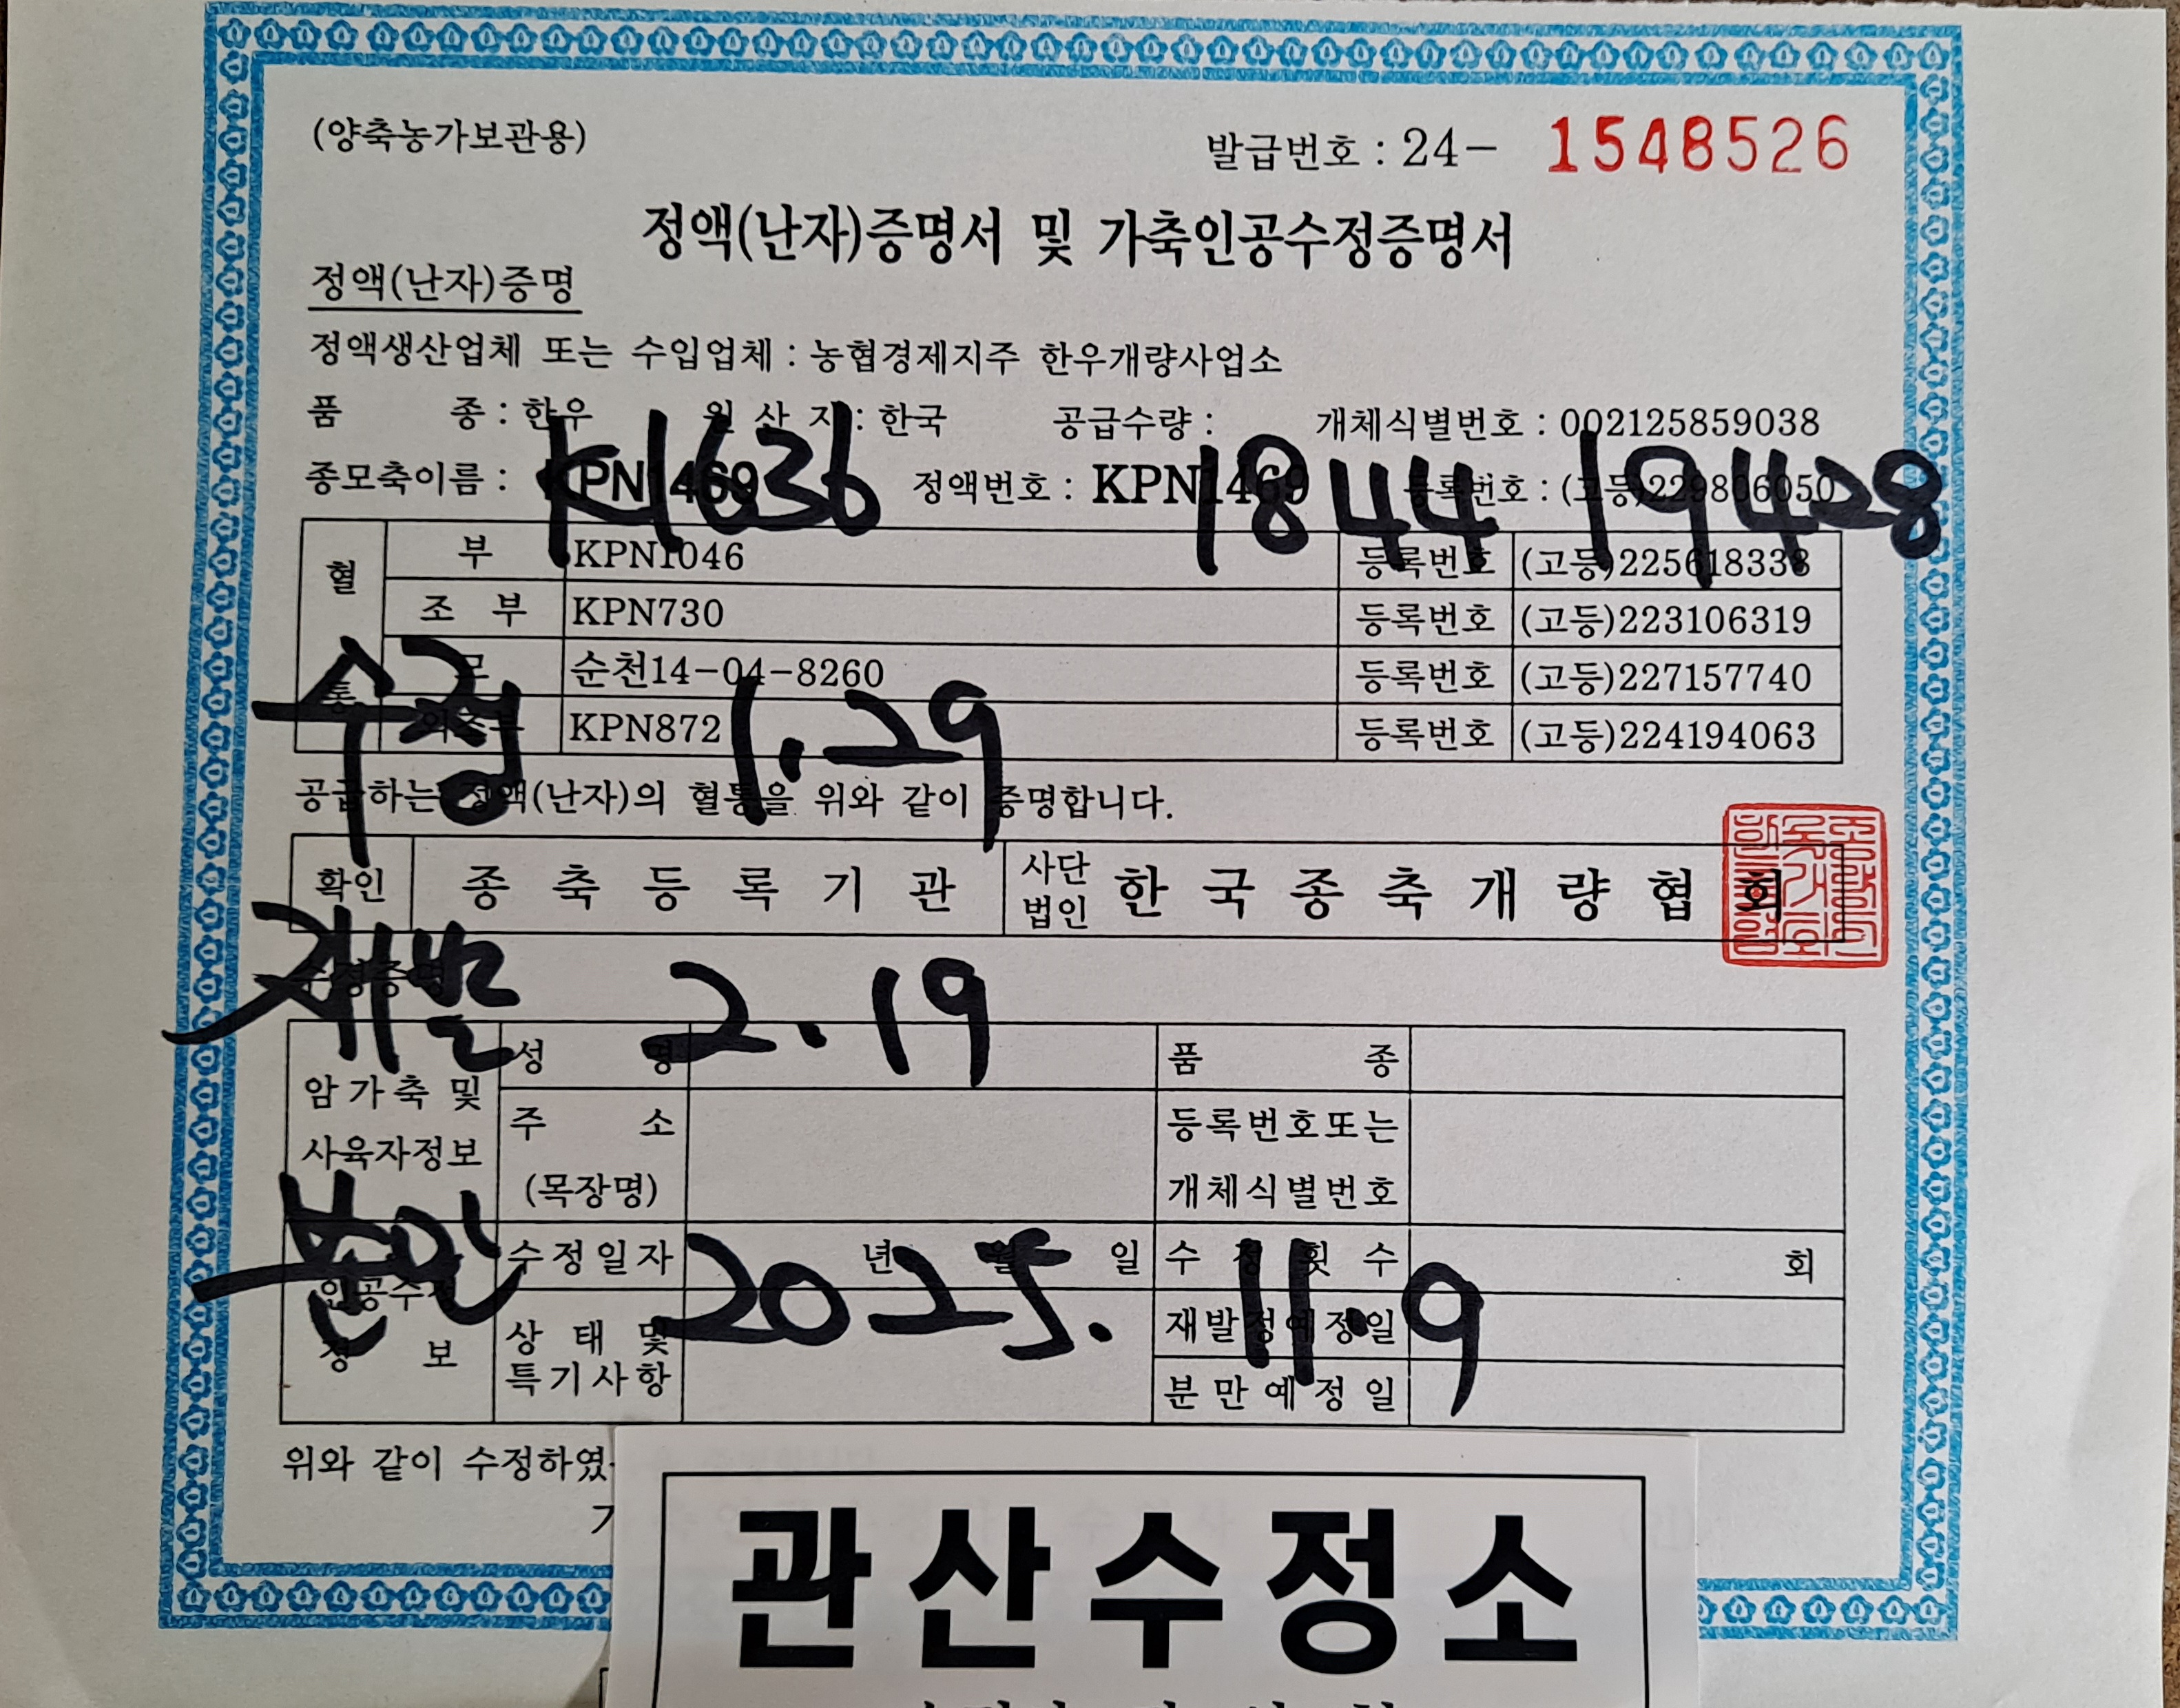 (양축농가보관용)
발급번호 : 24- 1548526
정액(난자)증명서 및 가축인공수정증명서
정액(난자)증명
정액생산업체 또는 수입업체 : 농협경제지주 한우개량사업소
품 종 : 한우 원 산 지 : 한국 공급수량 : 개체식별번호 : 002125859038
K1636 1844 19428
종모축이름 : KPN1469 정액번호 : KPN1469 등록번호 : (고등)229806050
혈통
부 KPN1046 등록번호 (고등)225618338
조 부 KPN730 등록번호 (고등)223106319
모 순천14-04-8260 등록번호 (고등)227157740
외조부 KPN872 등록번호 (고등)224194063
수정 1.29
공급하는 정액(난자)의 혈통을 위와 같이 증명합니다.
확인 종축등록기관 사단법인 한국종축개량협회
재발 2.19
수정증명
암가축 및 사육자정보
성 명 품 종
주 소 (목장명) 등록번호또는 개체식별번호
분만 2025. 11.9
인공수정 정 보
수정일자 년 월 일 수 정 횟 수 회
상 태 및 특기사항 재발정예정일
분만예정일
위와 같이 수정하였
관산수정소